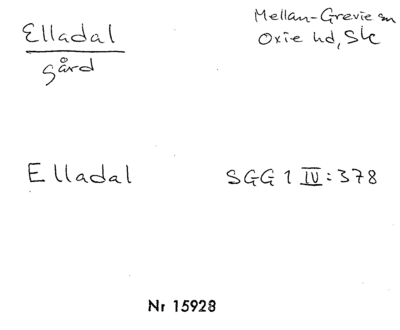 Elladal
gård
Mellan-Grevie sn
Oxie hd, Sk
Elladal
SGG 1 IV:378
Nr 15928